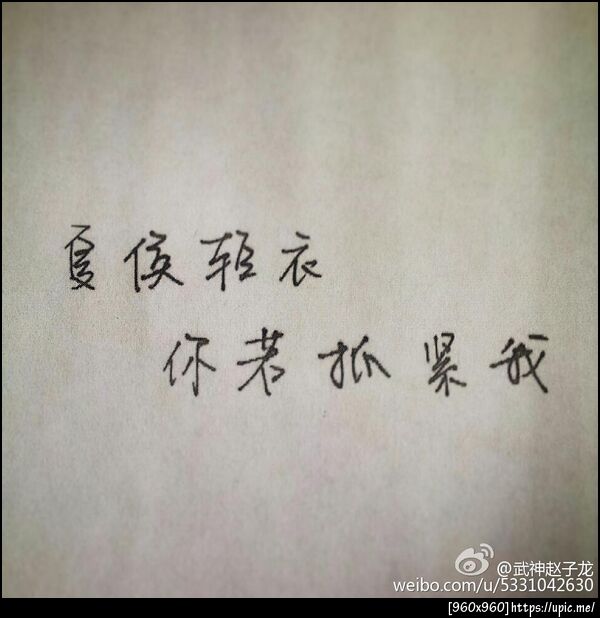 夏侯轻衣
你若抓紧我
@武神赵子龙
weibo.com/u/5331042630
[960x960]https://upic.me/